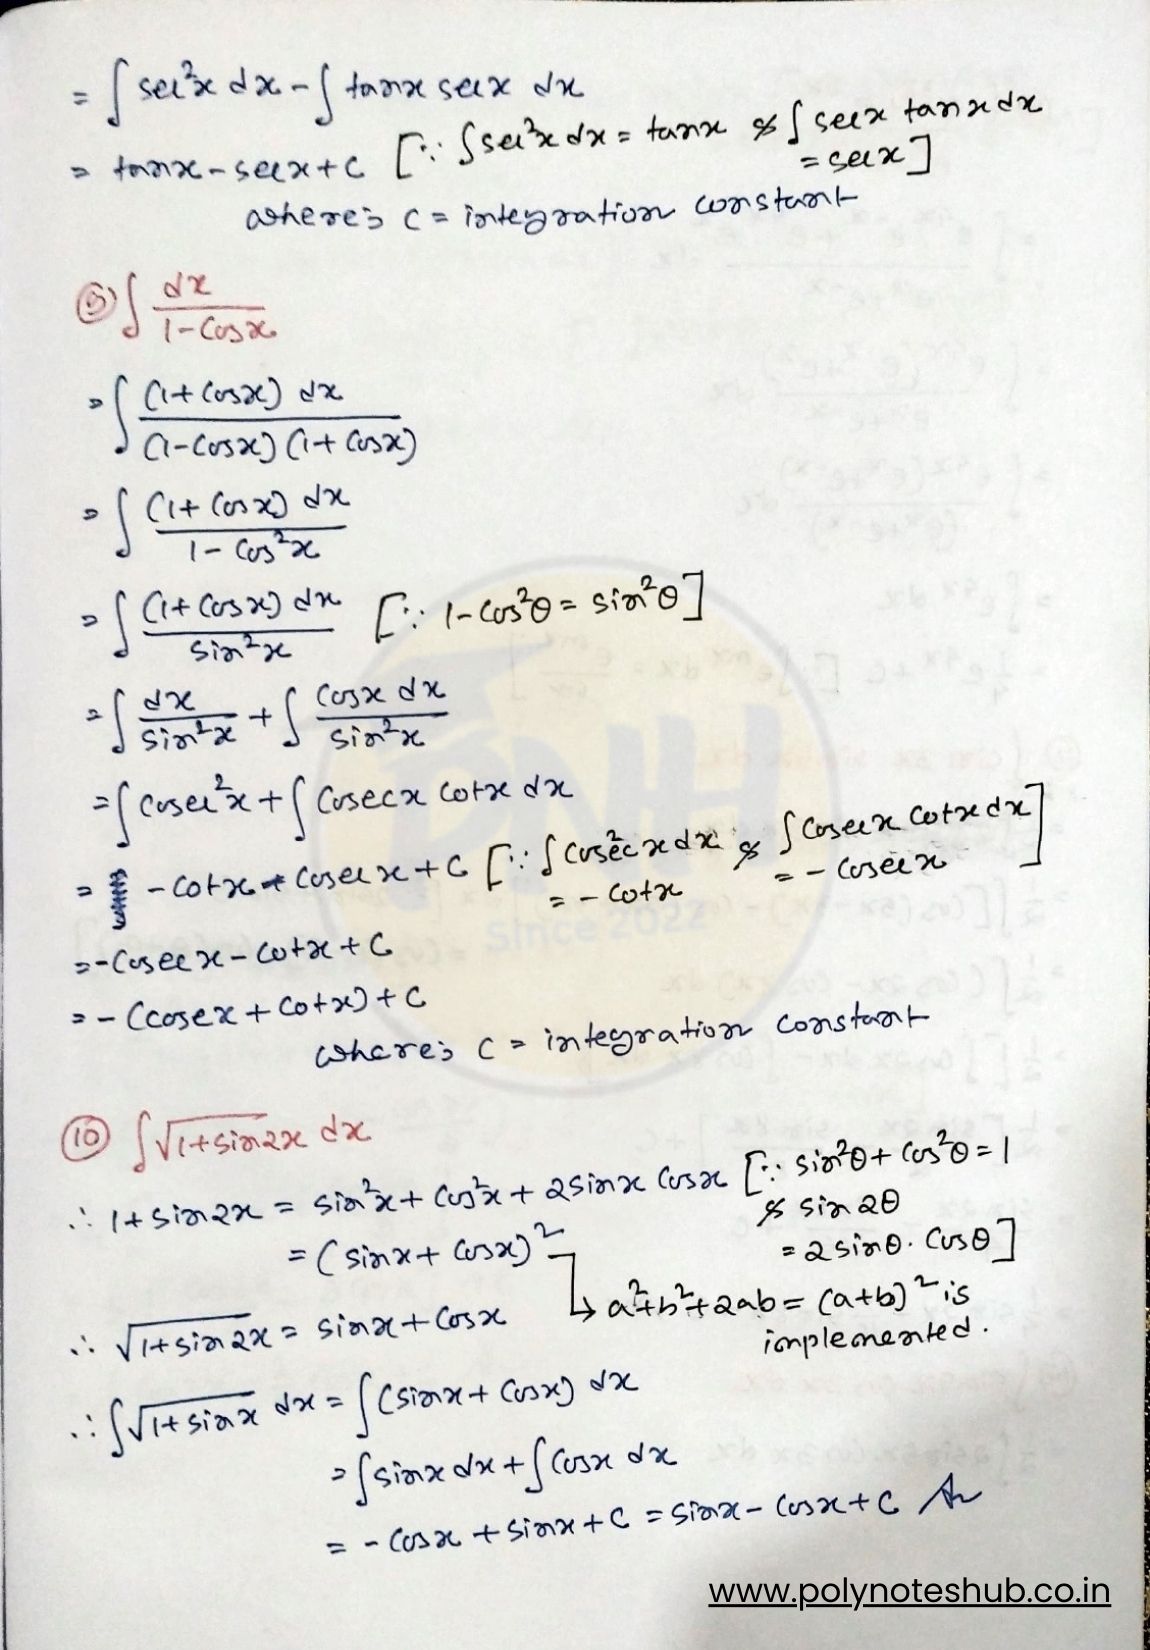 = ∫ sec²x dx - ∫ tanx secx dx
= tanx - secx + c [∵ ∫sec²x dx = tanx & ∫ secx tanx dx = secx]
where; c = integration constant
⑨ ∫ dx / (1 - cosx)
= ∫ (1 + cosx) dx / (1 - cosx) (1 + cosx)
= ∫ (1 + cosx) dx / 1 - cos²x
= ∫ (1 + cosx) dx / sin²x [∵ 1 - cos²θ = sin²θ]
= ∫ dx / sin²x + ∫ cosx dx / sin²x
= ∫ cosec²x + ∫ cosecx cotx dx
= - cotx - cosecx + c [∵ ∫ cosec²x dx = - cotx & ∫ cosecx cotx dx = - cosecx]
= - cosecx - cotx + c
= - (cosecx + cotx) + c
where; c = integration constant
⑩ ∫ √1+sin2x dx
∴ 1 + sin2x = sin²x + cos²x + 2sinx cosx [∵ sin²θ + cos²θ = 1 & sin2θ = 2sinθ. cosθ]
= (sinx + cosx)² ↳ a²+b²+2ab = (a+b)² is implemented.
∴ √1+sin2x = sinx + cosx
∴ ∫√1+sinx dx = ∫(sinx + cosx) dx
= ∫sinx dx + ∫cosx dx
= - cosx + sinx + c = sinx - cosx + c
PNH
Since 2022
www.polynoteshub.co.in